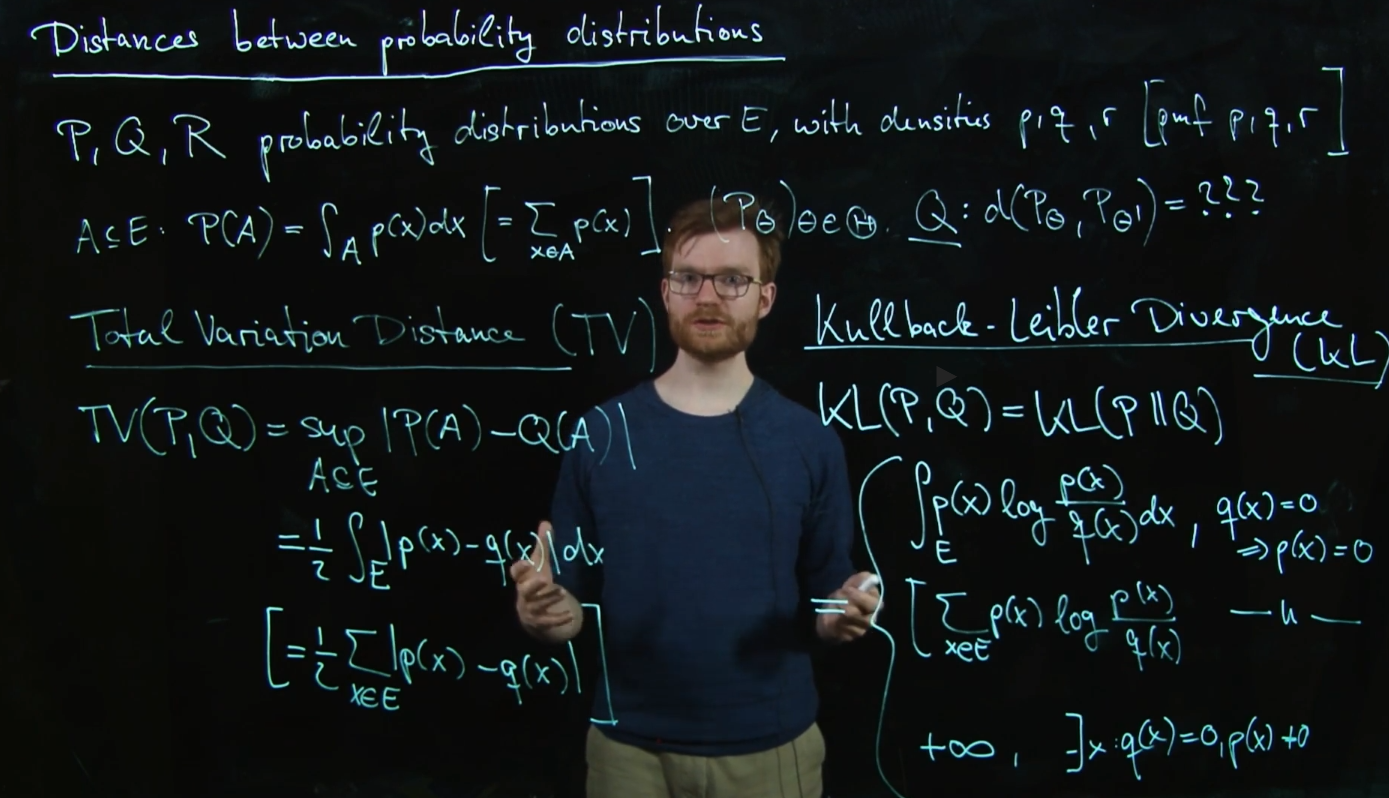 Distances between probability distributions
P, Q, R probability distributions over E, with densities p, q, r [pmf p, q, r]
A⊆E: P(A) = ∫_A p(x)dx [= ∑_{x∈A} p(x)]. (P_θ)_{θ∈Θ}. Q: d(P_θ, P_θ') = ???
Total Variation Distance (TV)
TV(P,Q) = sup_{A⊆E} |P(A) - Q(A)|
= 1/2 ∫_E |p(x) - q(x)| dx
[= 1/2 ∑_{x∈E} |p(x) - q(x)|]
Kullback-Leibler Divergence
(KL)
KL(P,Q) = KL(P||Q)
= { ∫_E p(x) log p(x)/q(x) dx, q(x)=0
⇒ p(x)=0
[∑_{x∈E} p(x) log p(x)/q(x) —"—
+∞, ]x: q(x)=0, p(x)≠0